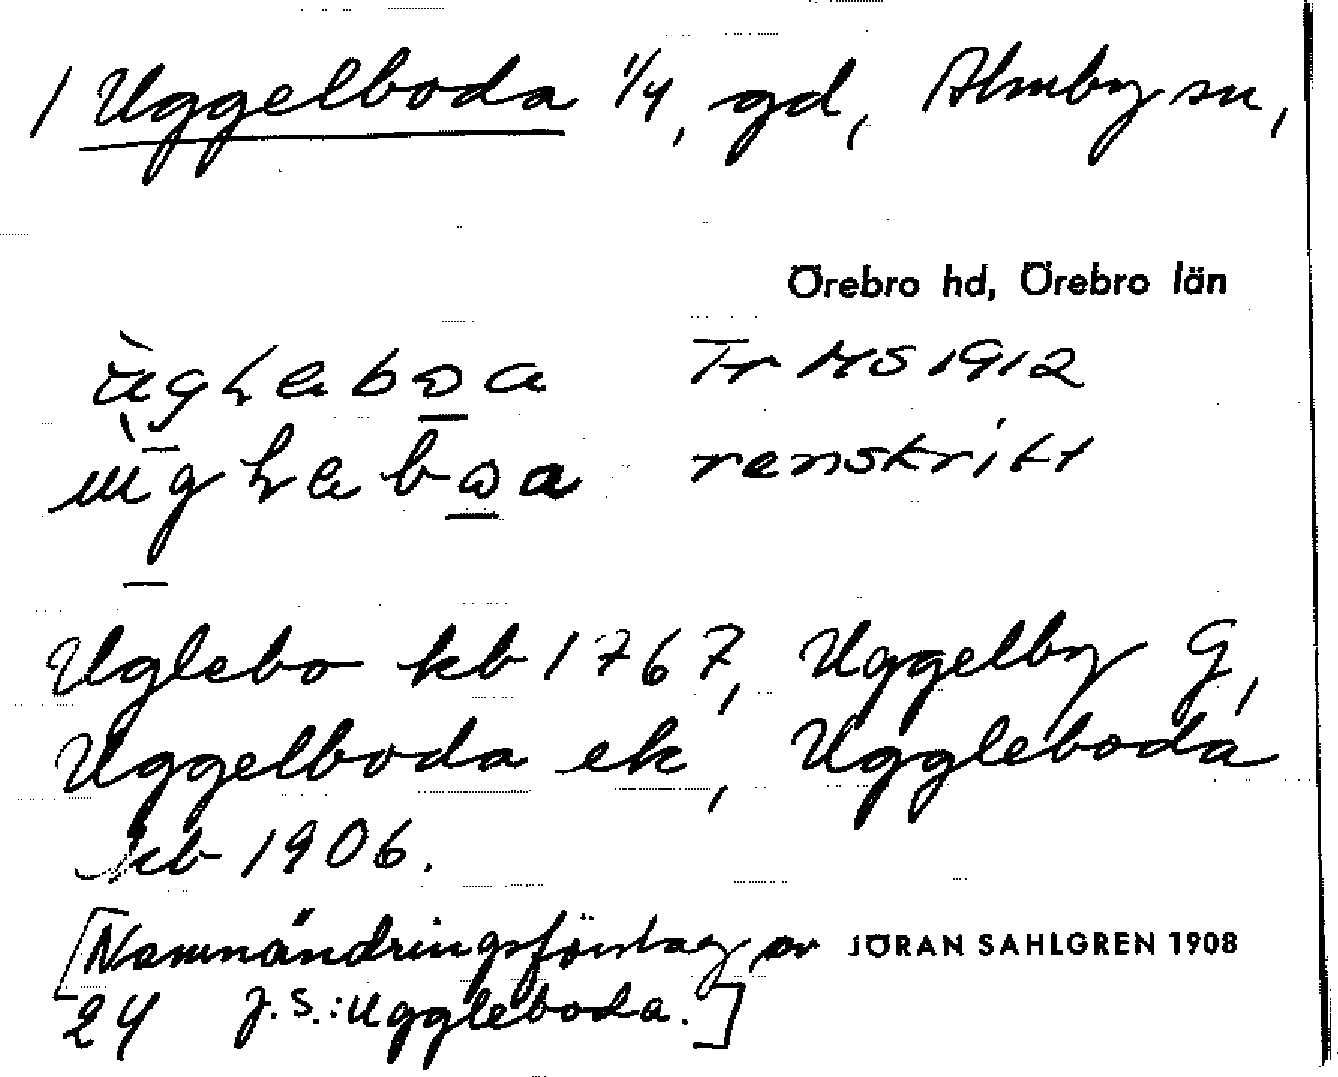 1 Uggelboda 1/4, gd, Almby sn,
Örebro hd, Örebro län
Tr MS 1912
renskrift
Uglebo kb 1767, Uggelby G,
Uggelboda ek, Uggleboda
kb 1906.
[Namnändringsförslag av JÖRAN SAHLGREN 1908
24 J.S.: Uggleboda.]